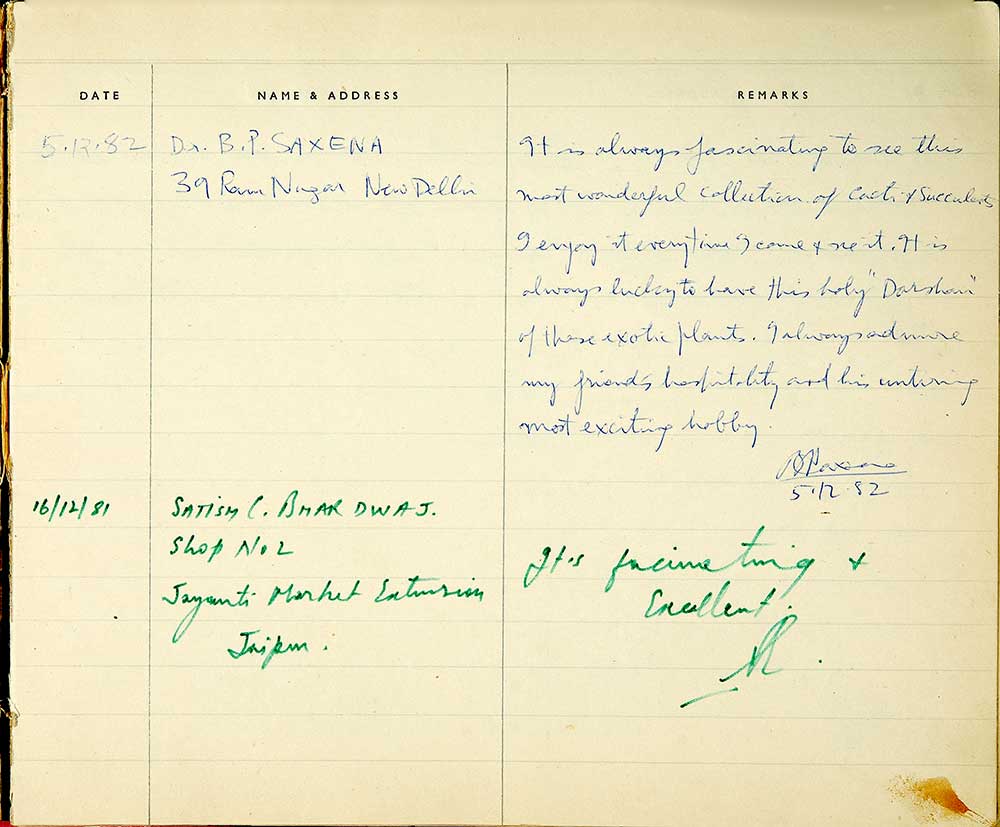 DATE NAME & ADDRESS REMARKS
5.12.82 Dr. B.P. SAXENA
39 Ram Nagar New Delhi
It is always fascinating to see this
most wonderful collection of Cacti & Succulents
I enjoy it everytime I come & see it. It is
always lucky to have this holy "Darshan"
of these exotic plants. I always admire
my friend's hospitality and his untiring
most exciting hobby.
5.12.82
16/12/81 SATISH C. BHARDWAJ.
Shop No 2
Jayanti Market Extension
Jaipur.
It's facinating &
Excellent.